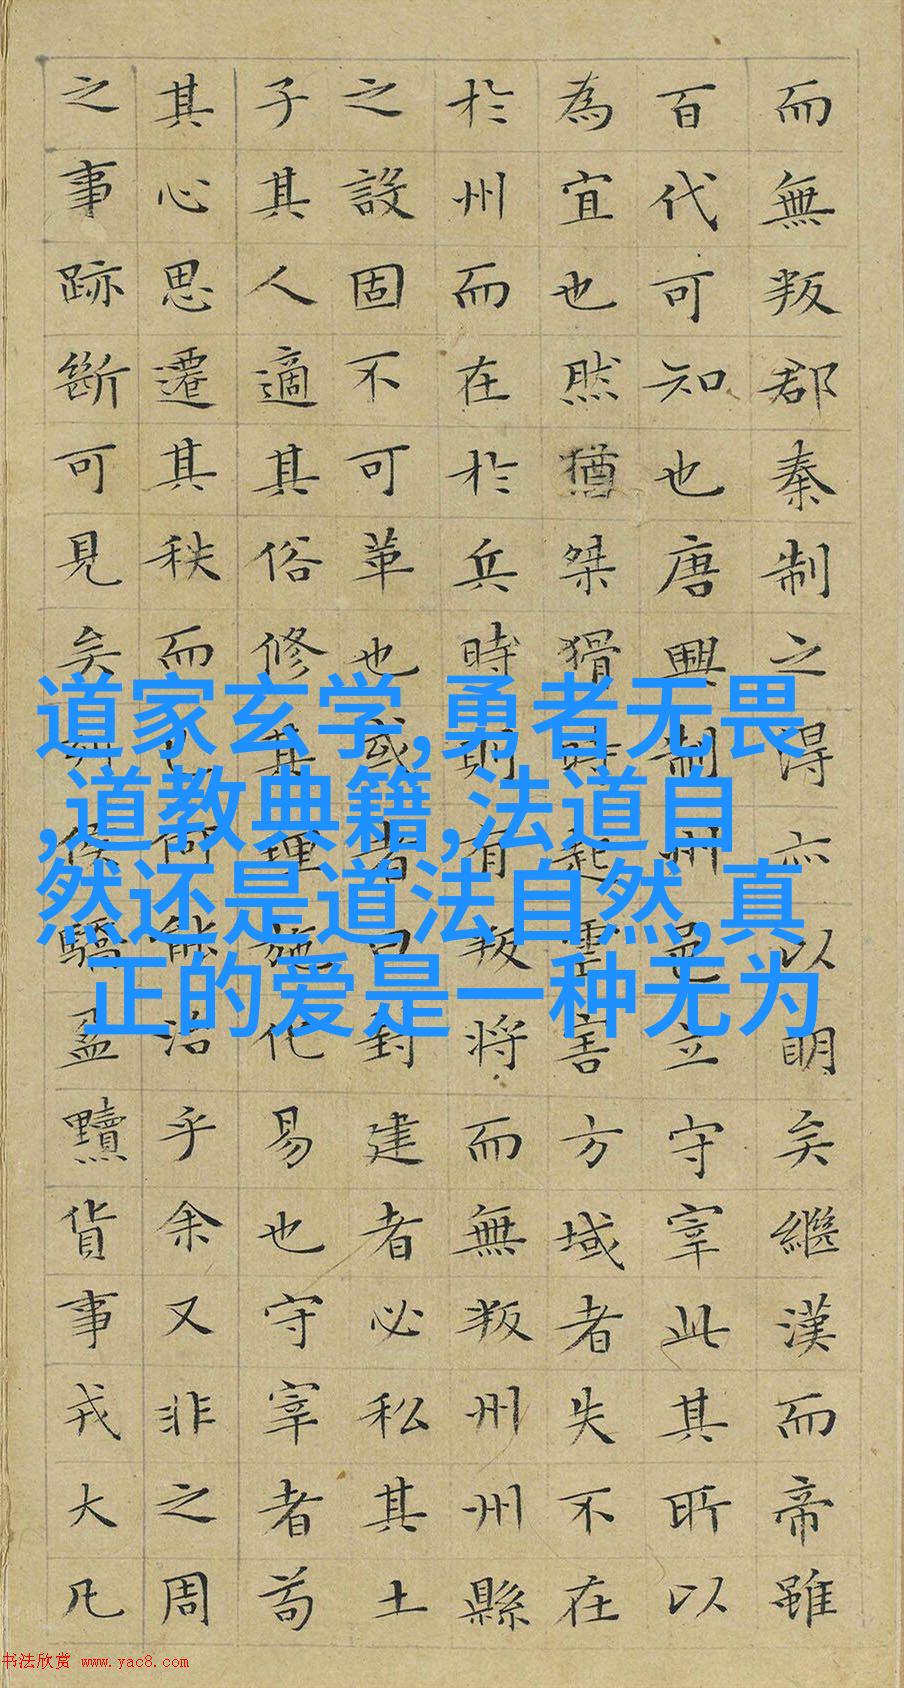 而無叛郡秦制之得亦以明矣繼漢而帝雖
百代可知也唐興制州邑立守宰此其所以
為宜也然猶桀猾時起虐害方域者失不在
於州而在於兵時則有叛將而無叛州州縣
之設固不可革也或者曰封建者必私其土
子其人適其俗修其理施化易也守宰者苟
其心思遷其秩而已何能治乎余又非之周
之事跡斷可見矣列侯驕盈黷貨事戎大凡
道家玄学,勇者无畏
,道教典籍,法道自
然还是道法自然,真
正的爱是一种无为
书法欣赏 www.yac8.com